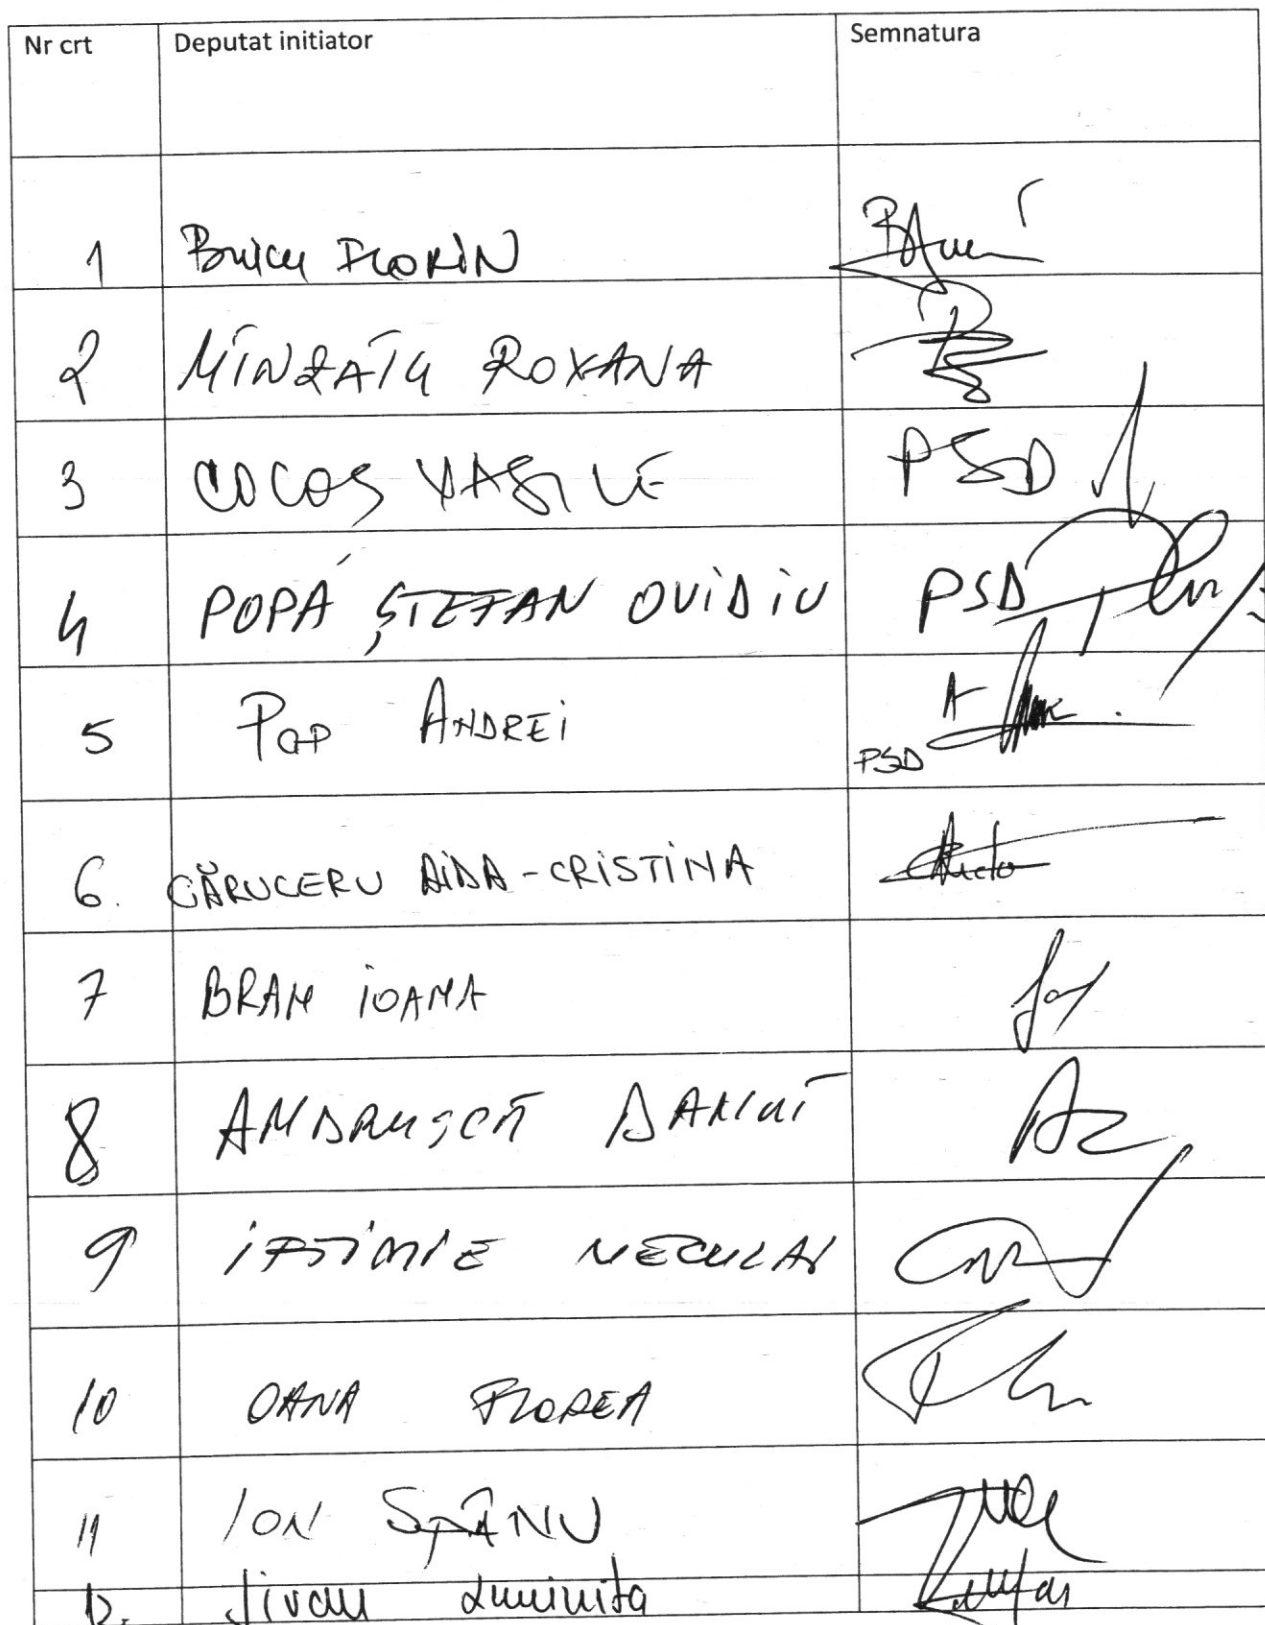 Nr crt Deputat initiator Semnatura
1 Buicu FLORIN
2 MÎNZATU ROXANA
3 COCOS VASILE PSD
4 POPA ȘTEFAN OVIDIU PSD
5 POP ANDREI PSD
6. CĂRUCERU AIDA-CRISTINA
7 BRAN IOANA
8 ANDRUȘCĂ DANUȚ
9 IFTIMIE NECULAI
10 OANA FLOREA
11 ION SPÂNU
12. Jivan Luminita